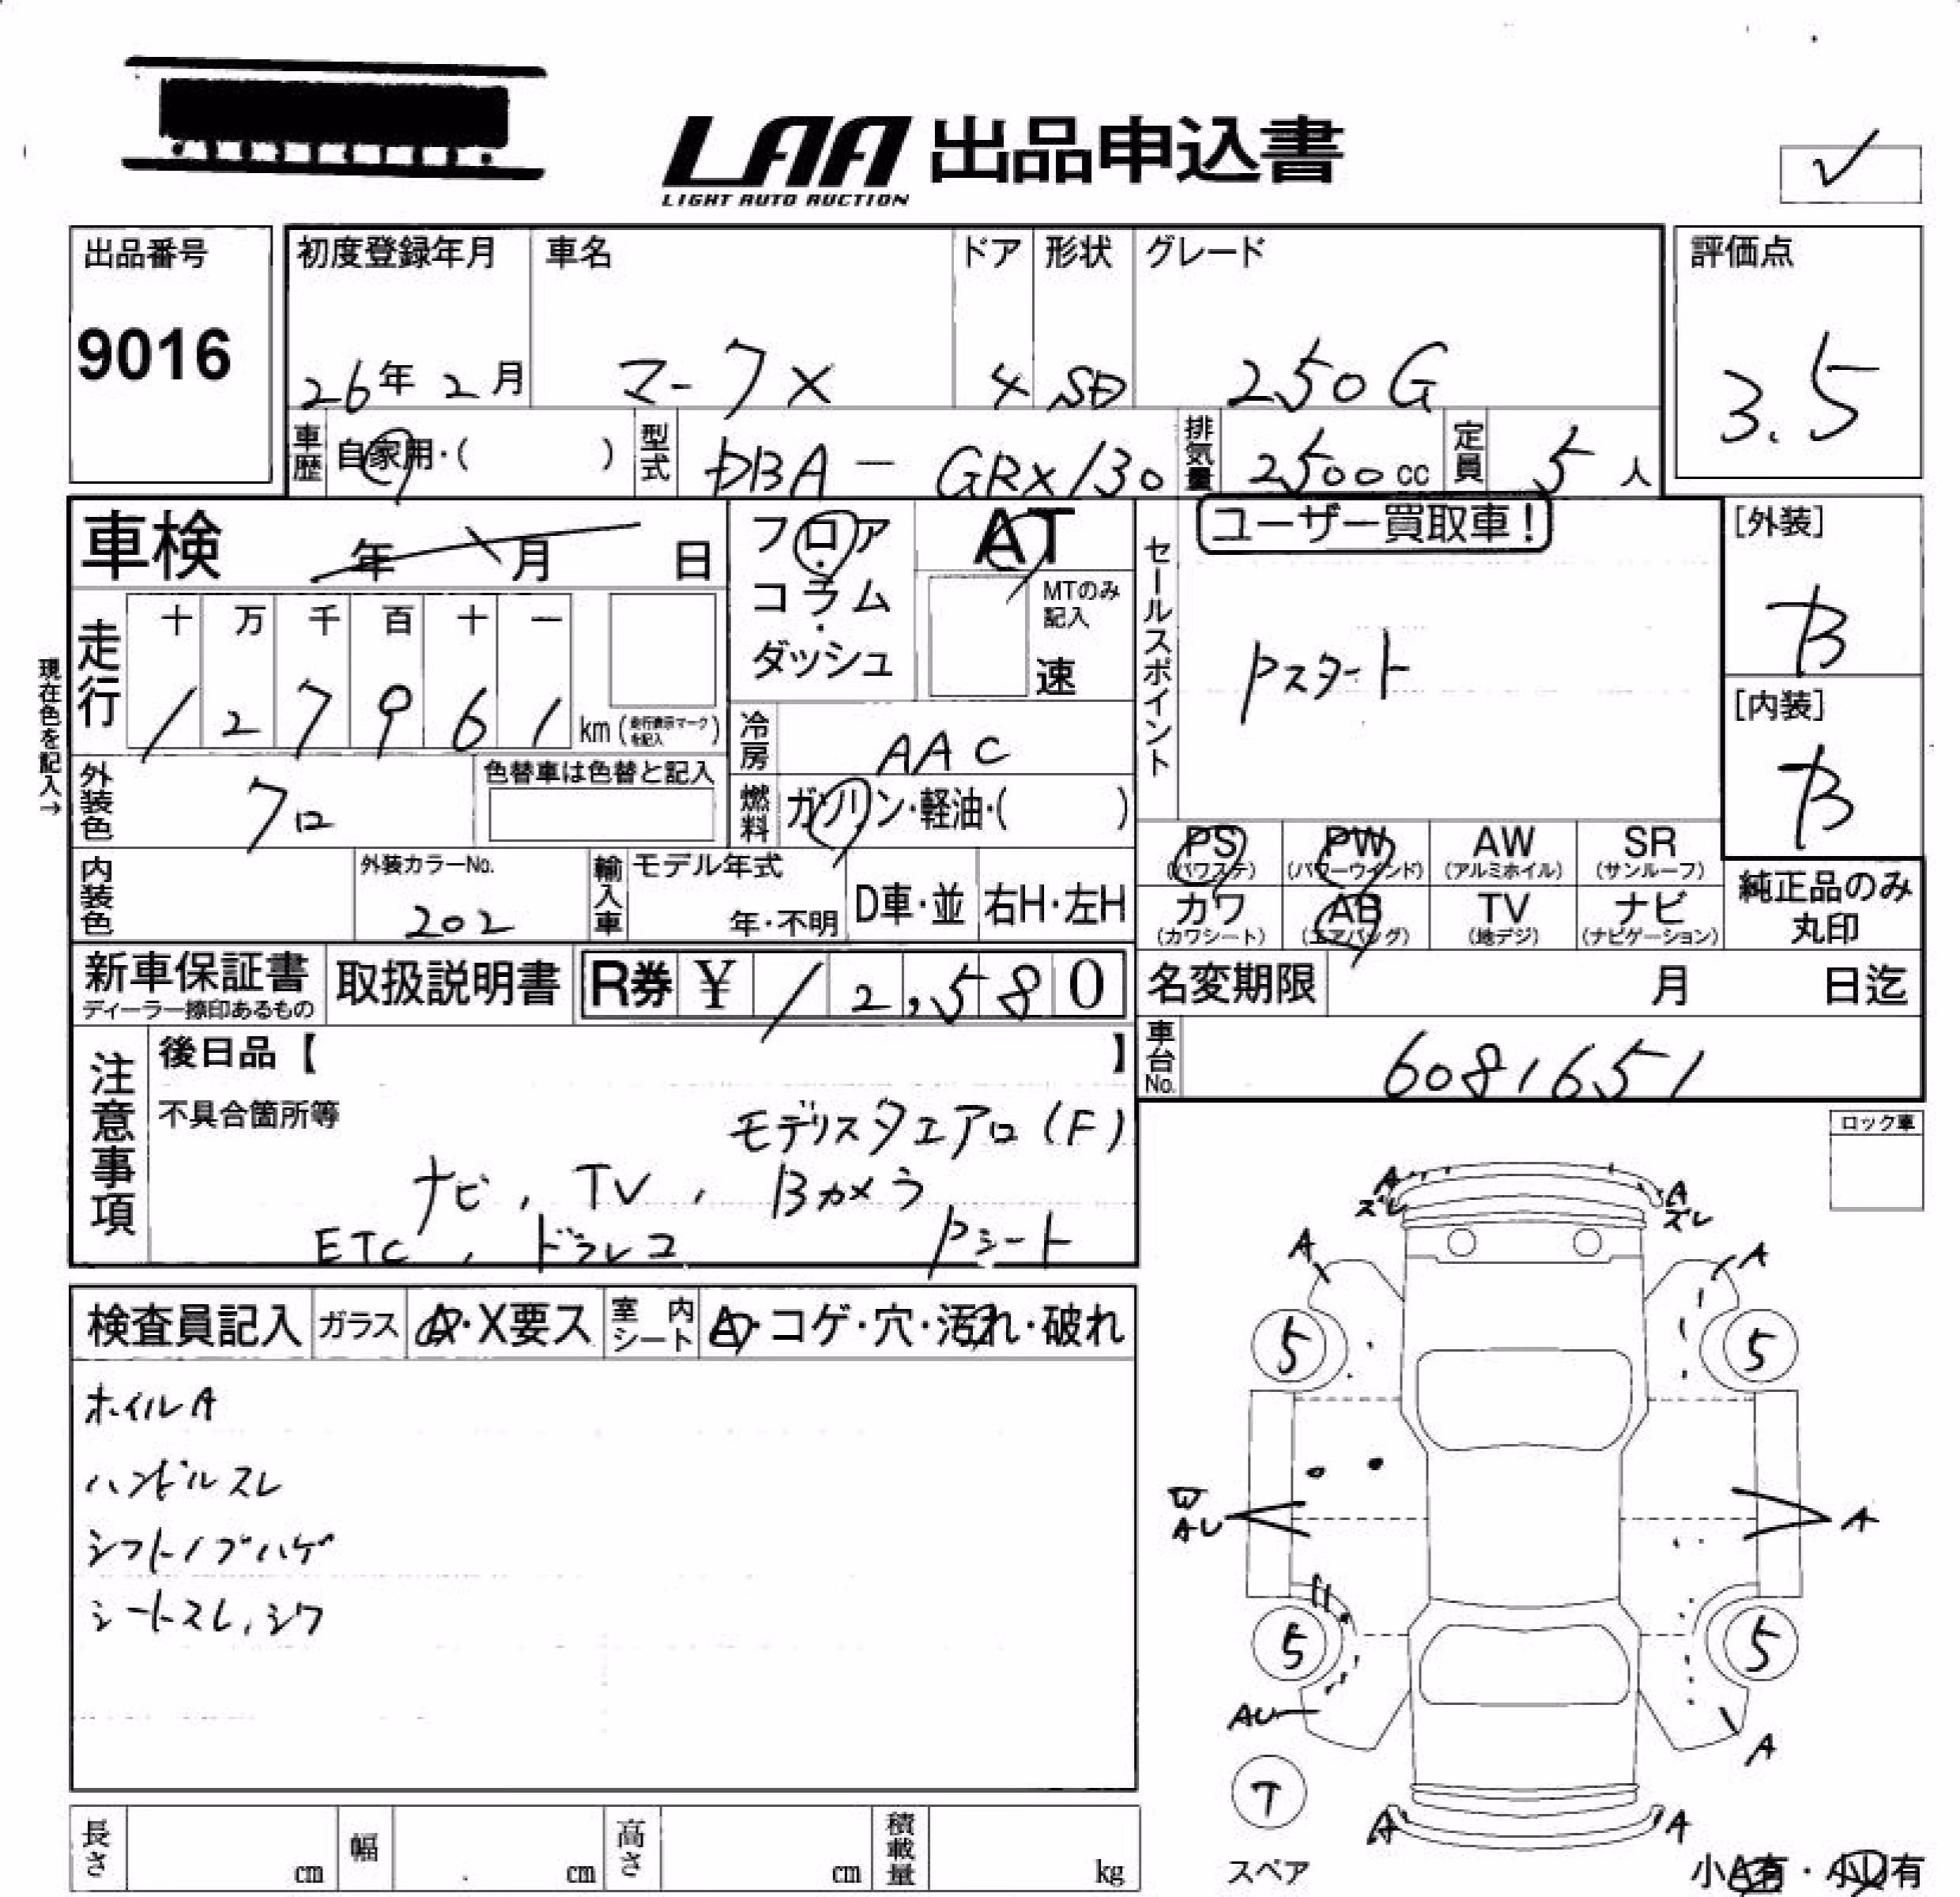 LAA 出品申込書
LIGHT AUTO AUCTION
✓
出品番号
9016
初度登録年月 車名 ドア 形状 グレード
26年 2月 マークX 4 SD 250G
評価点
3.5
車歴 自家用・( ) 型式 DBA-GRX130 排気量 2500cc 定員 5人
車検 年 月 日
フロア・コラム・ダッシュ
AT
MTのみ記入
速
セールスポイント
ユーザー買取車!
Pスタート
[外装]
B
[内装]
B
現在色を記入→
走行 十 万 千 百 十 一
1 2 7 9 6 1 km (走行表示マークを記入)
冷房 AAC
外装色 クロ
色替車は色替と記入
燃料 ガソリン・軽油・( )
内装色
外装カラーNo.
202
輸入車 モデル年式
年・不明 D車・並 右H・左H
PS PW AW SR
(パワステ) (パワーウインド) (アルミホイル) (サンルーフ)
カワ AB TV ナビ
(カワシート) (エアバッグ) (地デジ) (ナビゲーション)
純正品のみ
丸印
新車保証書
ディーラー捺印あるもの
取扱説明書 R券 ¥ 12,580
名変期限 月 日迄
車台No. 6081651
注意事項
後日品【 】
不具合箇所等 モデリスタエアロ(F)
ナビ, TV, Bカメラ
ETC, ドラレコ Pシート
ロック車
検査員記入 ガラス A・X要ス 室内シート A・コゲ・穴・汚れ・破れ
ホイルA
ハンドルスレ
シフトノブハゲ
シートスレ,シワ
A A
ズレ ズレ
A A
5 5
AU A
5 5
AU A
T
スペア
A A
小A有・小U有
長さ cm 幅 cm 高さ cm 積載量 kg